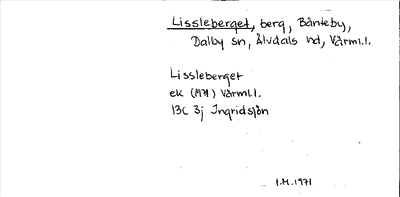 Lissleberget, berg, Bänteby,
Dalby sn, Älvdals hd, Värml.l.
Lissleberget
ek (1971) Värml.l.
13C 3j Ingridsjön
I.H. 1971